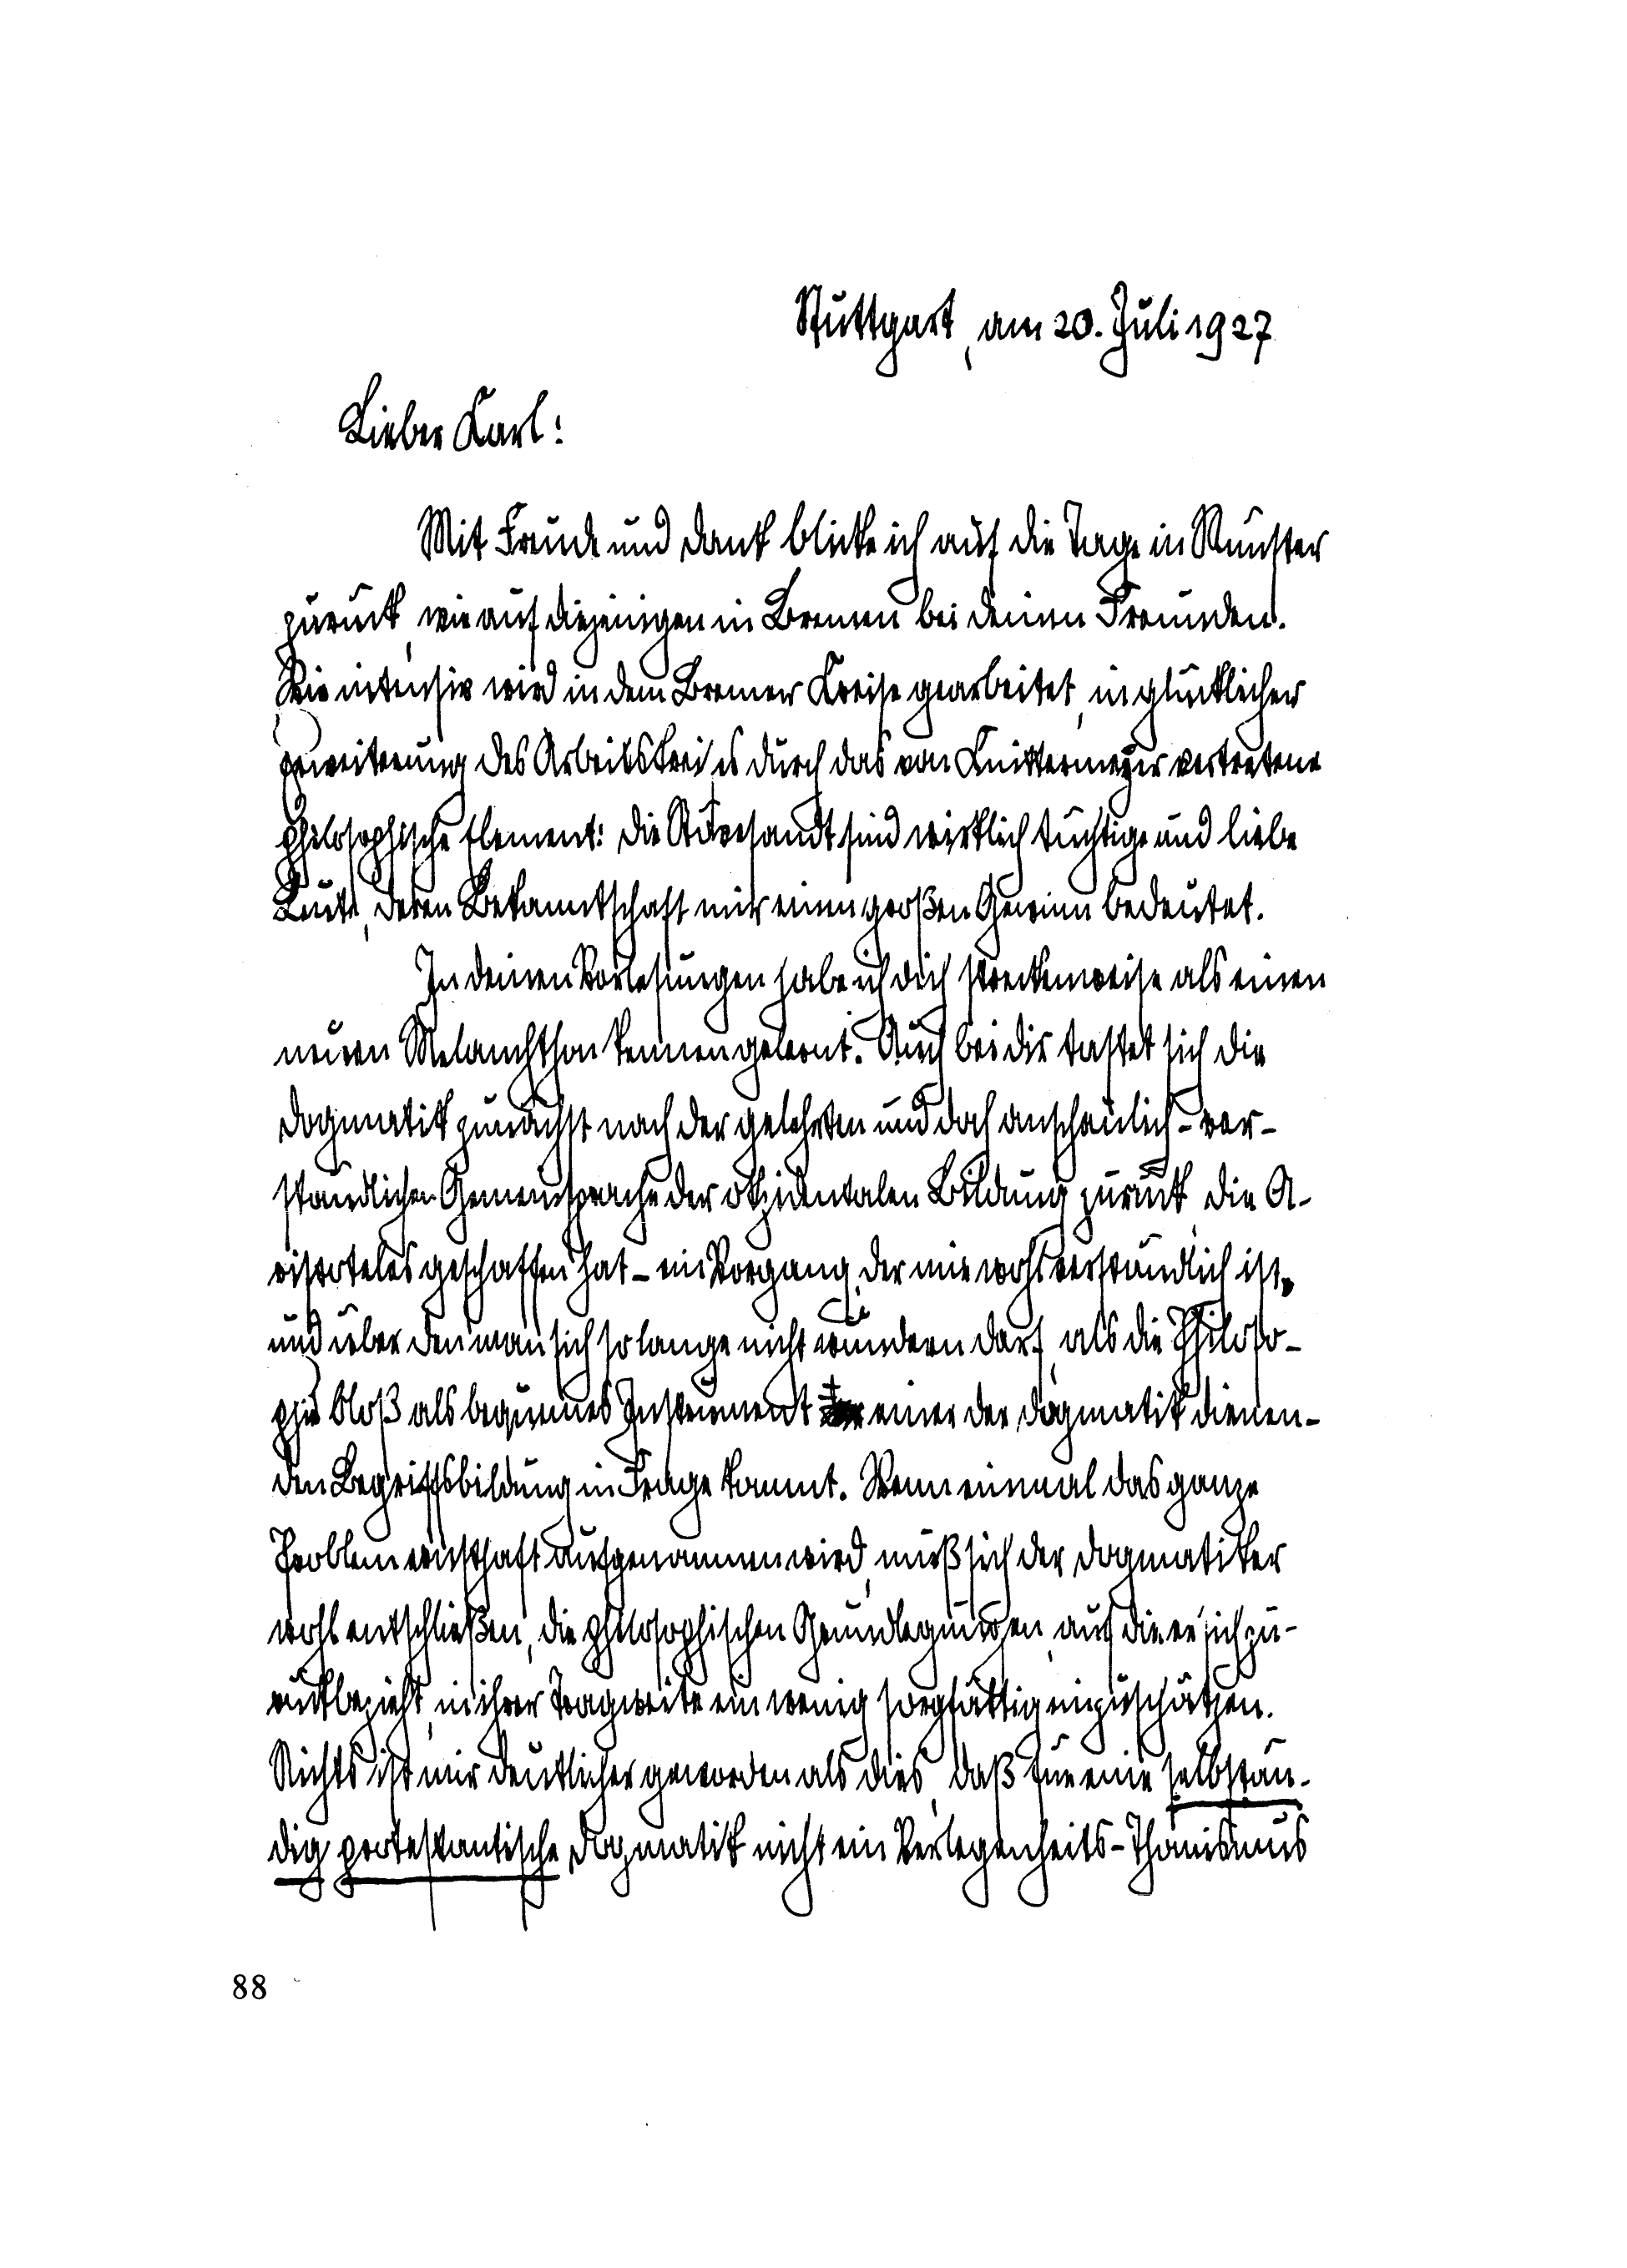 Stuttgart, am 20. Juli 1927
Lieber Karl:
Mit Freude und Dank blicke ich auf die Tage in Münster
zurück, wie auf diejenigen in Bremen bei deinen Freunden.
Wie intensiv wird in dem Bremer Kreise gearbeitet, in glücklicher
Erweiterung des Arbeitskreises durch das von Knittermeyer vertretene
philosophische Element: die Stoevesandt sind wirklich tüchtige und liebe
Leute, deren Bekanntschaft mir einen großen Gewinn bedeutet.
In deinen Vorlesungen habe ich dich streckenweise als einen
neuen Melanchthon kennen gelernt. Auch bei dir tastet sich die
Dogmatik zunächst nach der gelehrten und doch anschaulich-ver-
ständlichen Gemeinsprache der okzidentalen Bildung zurück, die A-
ristoteles geschaffen hat – ein Vorgang, der mir wohl verständlich ist,
und über den man sich so lange nicht wundern darf, als die Philoso-
phie bloß als bequemes Instrument einer der Dogmatik dienen-
den Begriffsbildung in Frage kommt. Wenn einmal das ganze
Problem ernsthaft aufgenommen wird, muß sich der Dogmatiker
wohl entschließen, die philosophischen Grundlegungen, auf die er sich zu-
rückbezieht, in ihrer Tragweite ein wenig sorgfältig einzuschätzen.
Nichts ist mir deutlicher geworden als dies, daß für eine selbstän-
dig protestantische Dogmatik nicht ein Verlegenheits-Thomismus
88